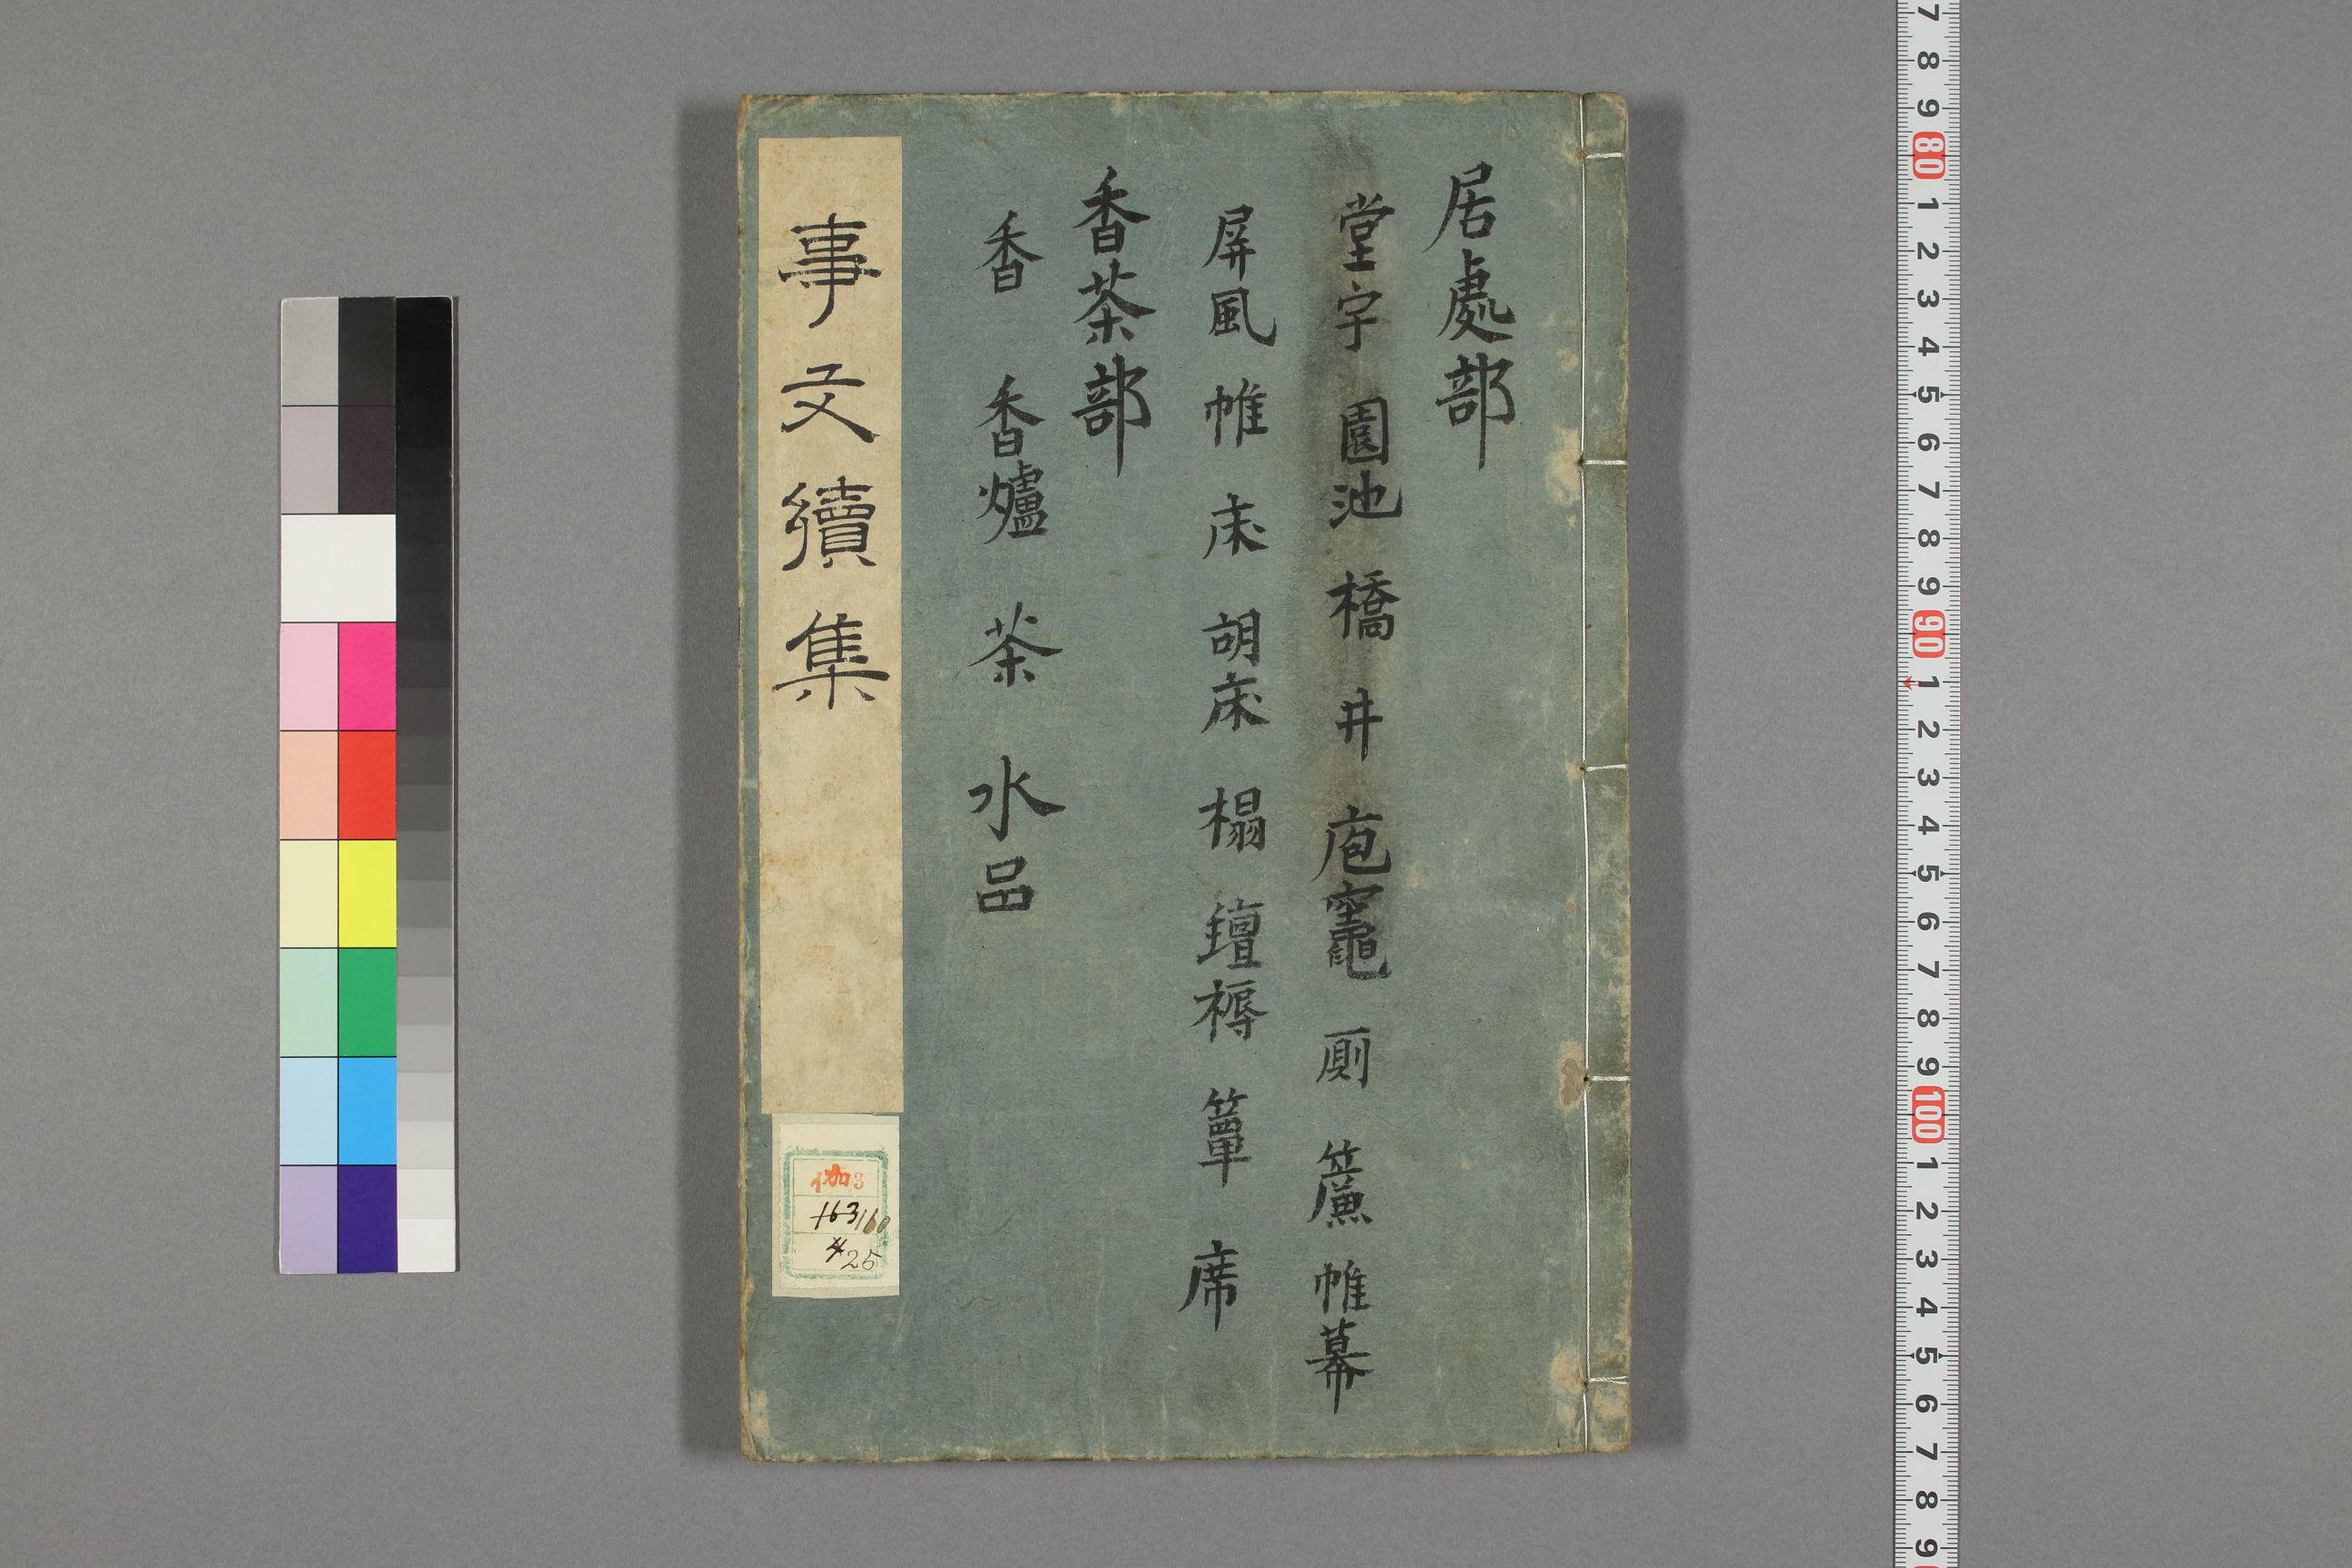 居處部
堂宇 園池 橋 井 庖竈 厠 簾 帷幕
屏風 帷 床 胡床 榻 氊褥 簟 席
香茶部
香 香爐 茶 水品
事文續集
伽3
163 160
25
7 8 9 80 1 2 3 4 5 6 7 8 9 90 1 2 3 4 5 6 7 8 9 100 1 2 3 4 5 6 7 8 9